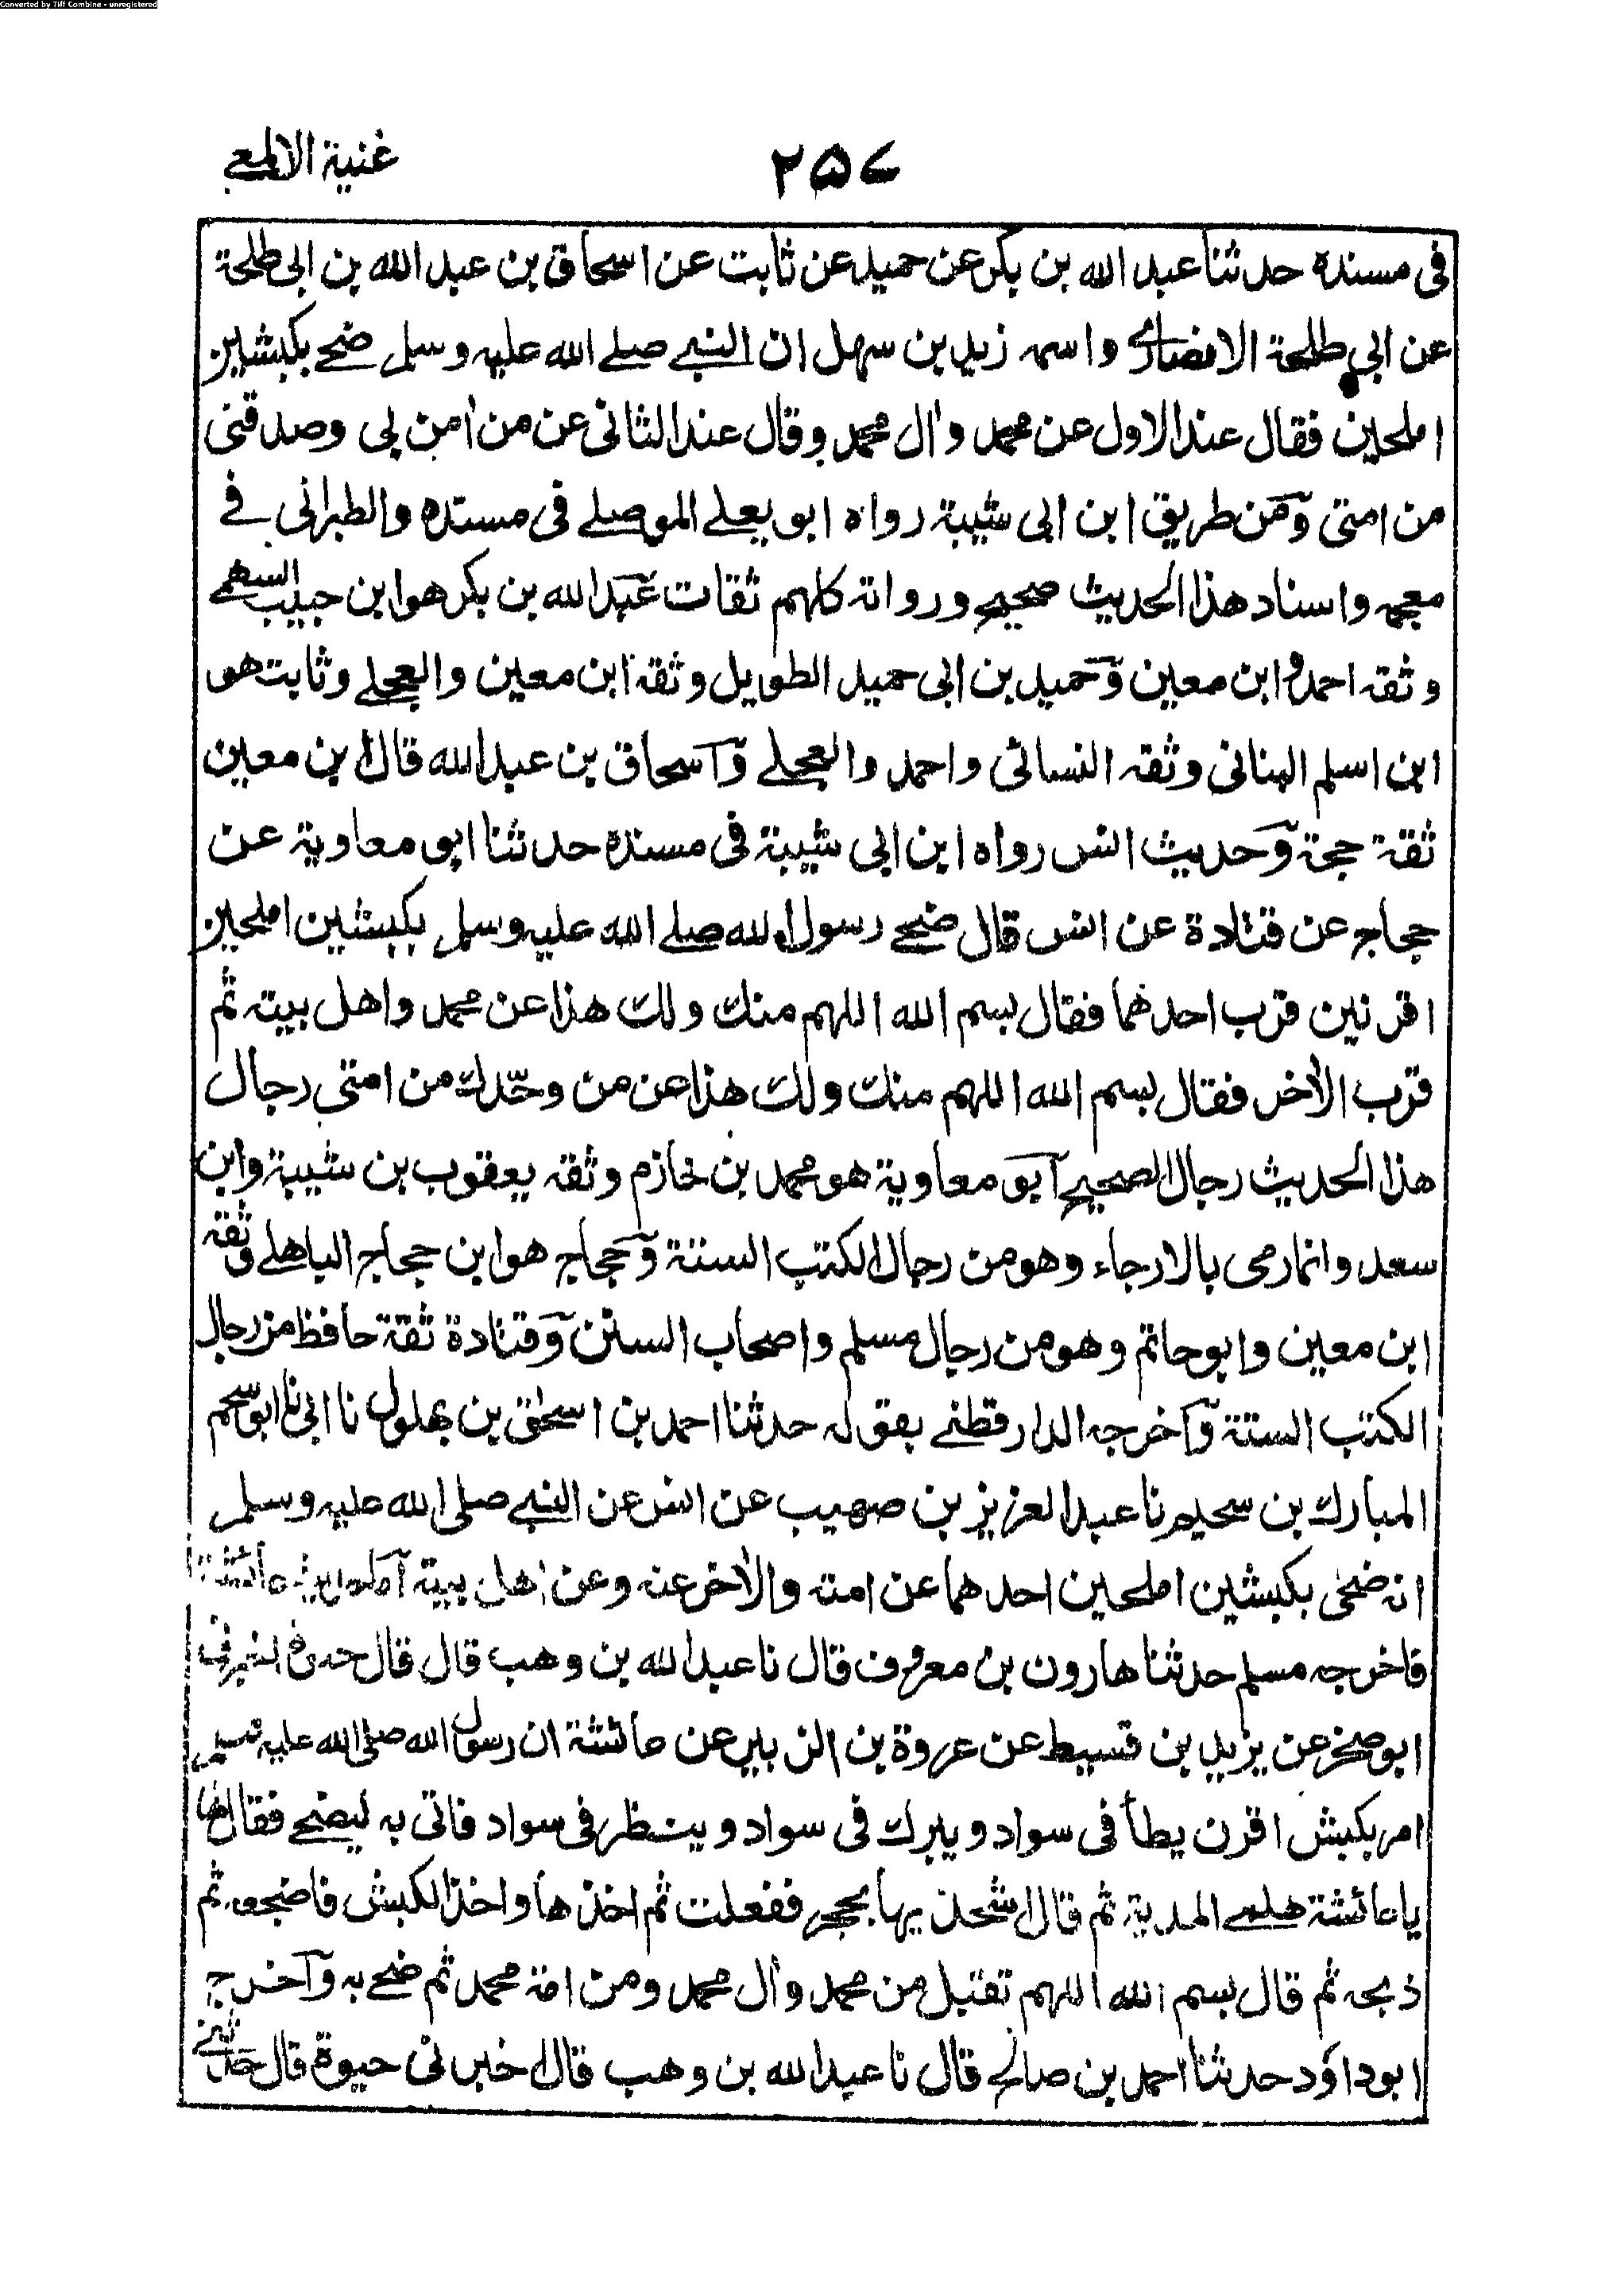 Converted by Tiff Combine - unregistered
غنية الالمعي
٢٥٧
فى مسنده حدثنا عبد الله بن بكر عن حميد عن ثابت عن اسحاق بن عبد الله بن ابى طلحة
عن ابي طلحة الانصاري واسمه زيد بن سهل ان النبي صلے الله عليه وسلم ضحے بكبشين
املحين فقال عند الاول عن محمد وآل محمد وقال عند الثانى عن من آمن بى وصدقنى
من امتى ومن طريق ابن ابى شيبة رواه ابو يعلے الموصلے فى مسنده والطبرانى فے
معجمه واسناد هذا الحديث صحيح ورواته كلهم ثقات عبد الله بن بكر هو ابن حبيب السهمے
وثقه احمد وابن معين وحميد بن ابى حميد الطويل وثقه ابن معين والعجلے وثابت هو
ابن اسلم البنانى وثقه النسائى واحمد والعجلے واسحاق بن عبد الله قال ابن معين
ثقة حجة وحديث انس رواه ابن ابى شيبة فى مسنده حدثنا ابو معاوية عن
حجاج عن قتادة عن انس قال ضحے رسول الله صلے الله عليه وسلم بكبشين املحين
اقرنين قرب احدهما فقال بسم الله اللهم منك ولك هذا عن محمد واهل بيته ثم
قرب الآخر فقال بسم الله اللهم منك ولك هذا عن من وحّدك من امتى رجال
هذا الحديث رجال الصحيح ابو معاوية هو محمد بن خازم وثقه يعقوب بن شيبة وابن
سعد وانما رمى بالارجاء وهو من رجال الكتب الستة وحجاج هو ابن حجاج الباهلے وثقه
ابن معين وابو حاتم وهو من رجال مسلم واصحاب السنن وقتادة ثقة حافظ من رجال
الكتب الستة واخرجه الدارقطنے بقوله حدثنا احمد بن اسحٰق بن بهلول نا ابى نا ابو سحيم
المبارك بن سحيم نا عبد العزيز بن صهيب عن انس عن النبي صلى الله عليه وسلم
انه ضحٰى بكبشين املحين احدهما عن امته والآخر عنه وعن اهل بيته اما حديث عائشة
فاخرجه مسلم حدثنا هارون بن معروف قال نا عبد الله بن وهب قال قال حيوة اخبرنى
ابو صخر عن يزيد بن قسيط عن عروة بن الزبير عن عائشة ان رسول الله صلى الله عليه وسلم
امر بكبش اقرن يطأ فى سواد ويبرك فى سواد وينظر فى سواد فاتى به ليضحے فقال لها
يا عائشة هلمے المدية ثم قال اشحذيها بحجر ففعلت ثم اخذها واخذ الكبش فاضجعه ثم
ذبحه ثم قال بسم الله اللهم تقبل من محمد وآل محمد ومن امة محمد ثم ضحے به واخرج
ابو داؤد حدثنا احمد بن صالح قال نا عبد الله بن وهب قال اخبرنى حيوة قال حدثنے